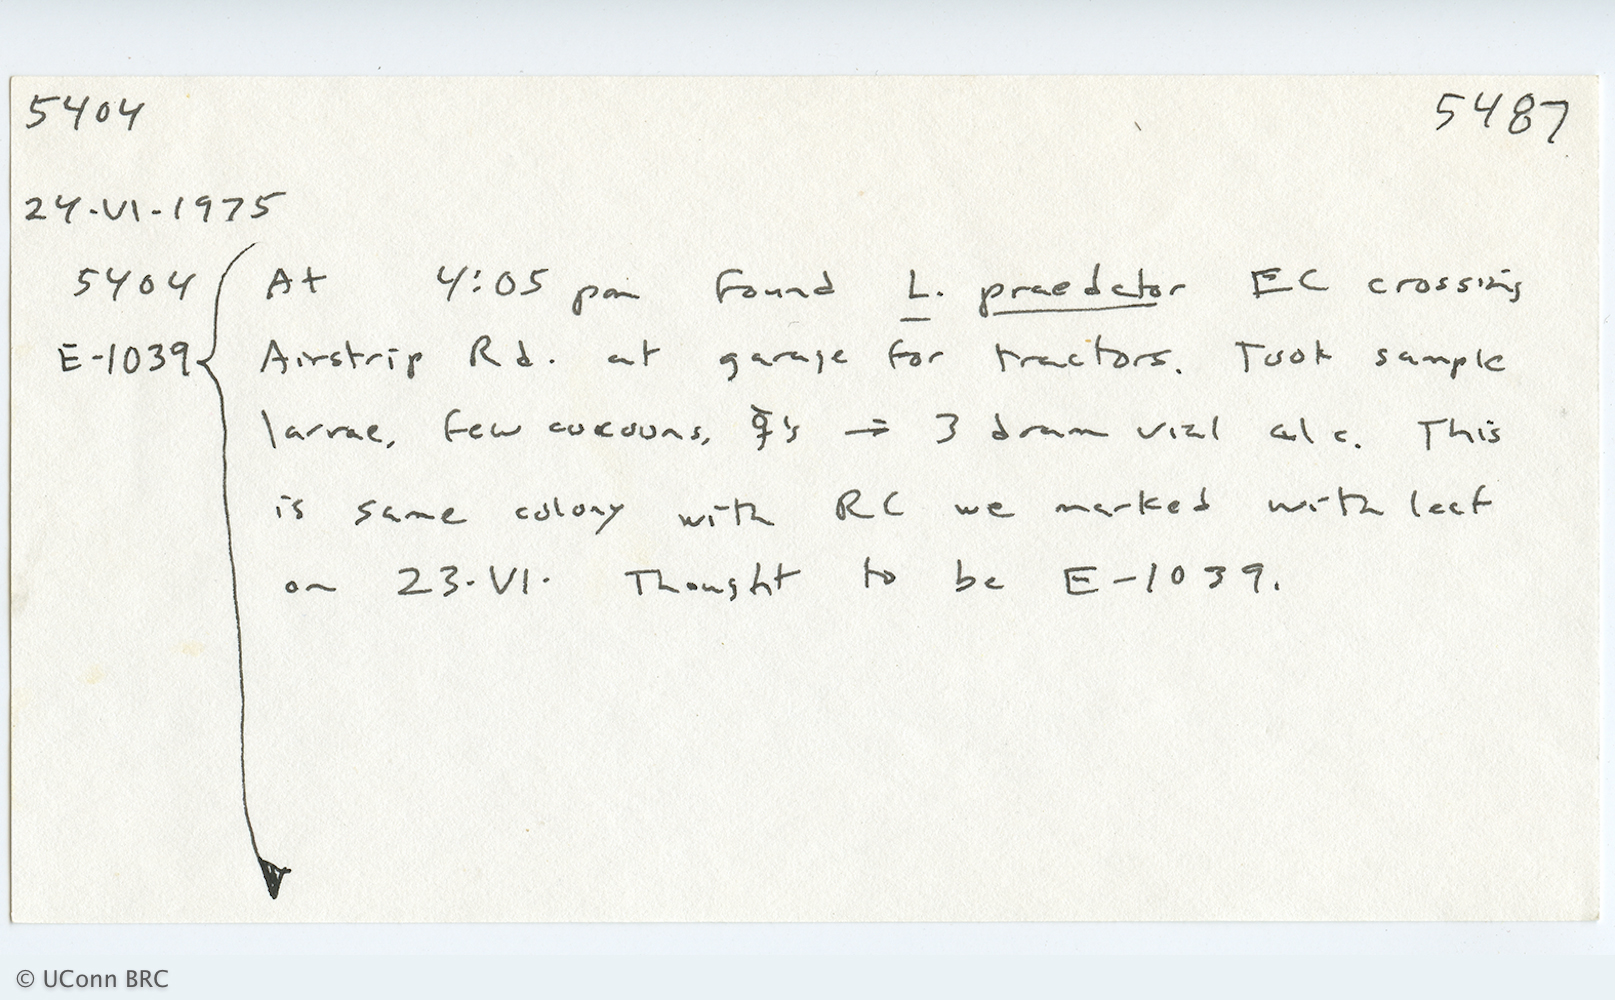 5404 5487
24-VI-1975
5404 At 4:05 pm found L. praedator EC crossing
E-1039 Airstrip Rd. at garage for tractors. Took sample
larvae, few cocoons, ☿'s → 3 dram vial alc. This
is same colony with RC we marked with leaf
on 23-VI. Thought to be E-1039.
© UConn BRC